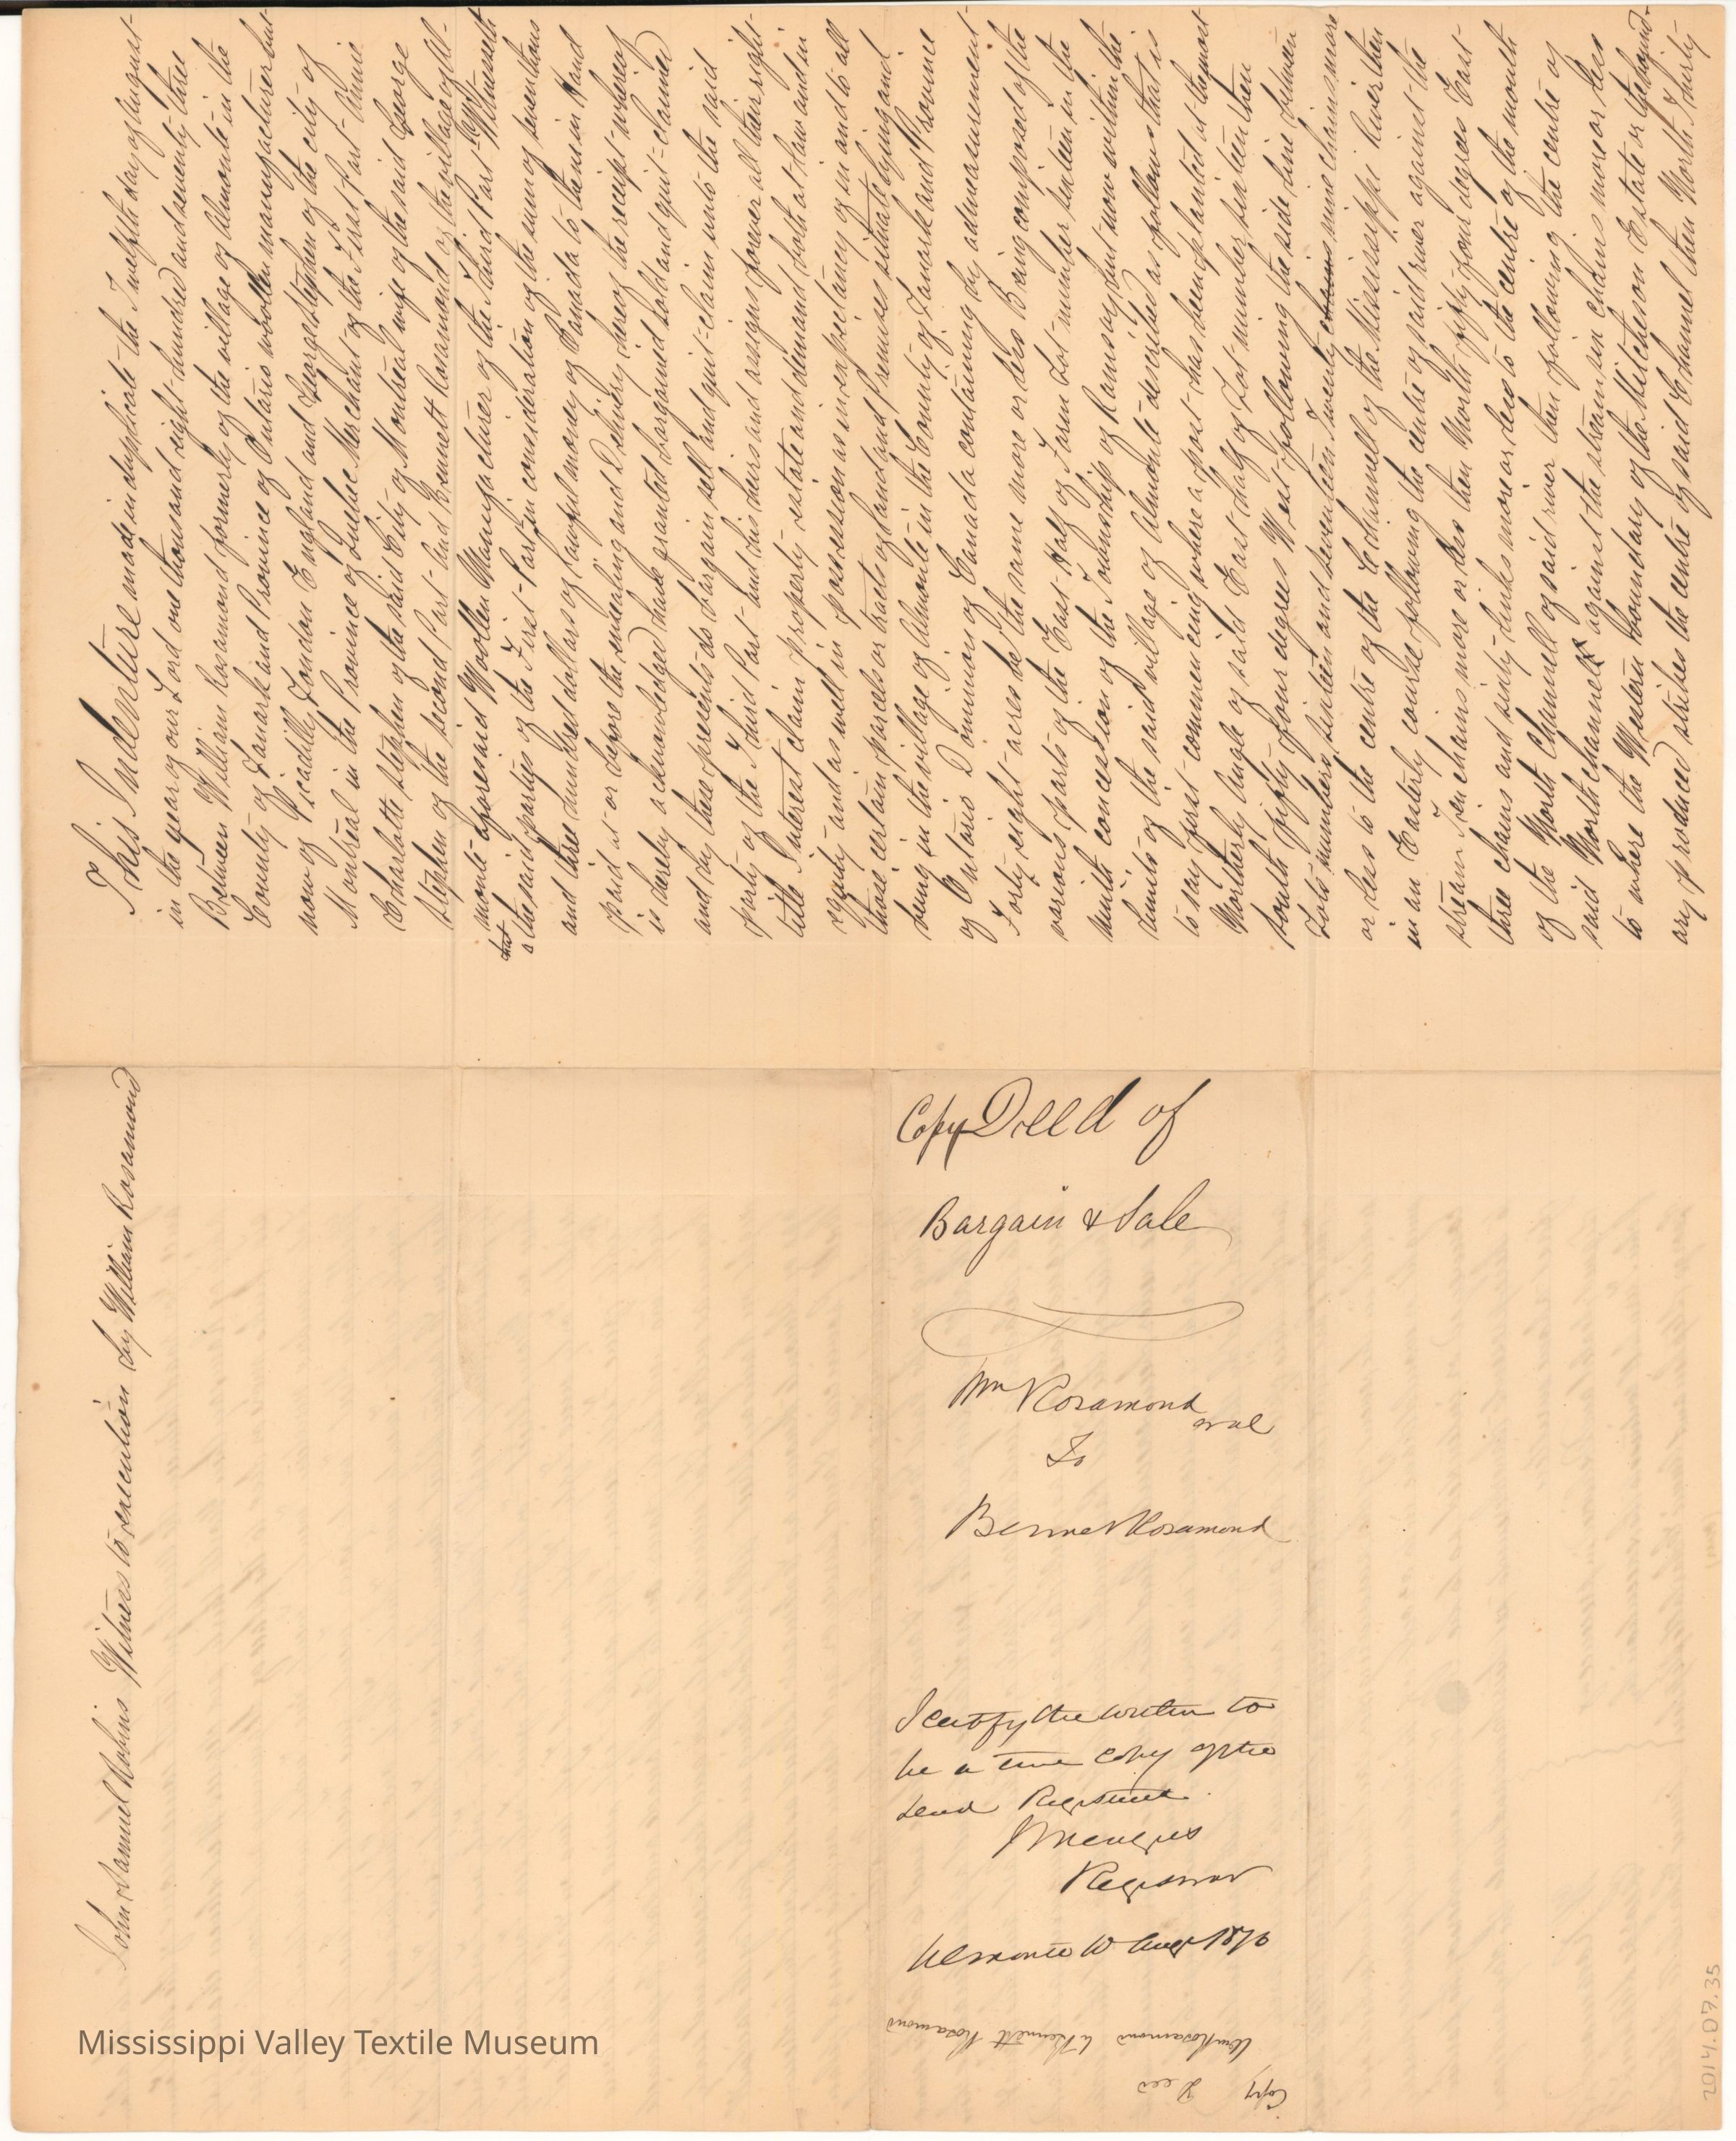 This Indenture made in duplicate the Twelfth day of August
in the year of our Lord one thousand eight hundred and seventy three
Between William Rosamond formerly of the village of Almonte in the
County of Lanark and Province of Ontario woollen manufacturer but
now of Picadilly London England and George Stephen of the city of
Montreal in the Province of Quebec Merchant of the First Part Annie
Charlotte Stephen of the said City of Montreal wife of the said George
Stephen of the second Part And Bennett Rosamond of the village of Al-
monte aforesaid Woollen Manufacturer of the Third Part Witnesseth
that the said parties of the First Part in consideration of the sum of seven thous
and three hundred dollars of lawful money of Canada to them in Hand
paid at or before the ensealing and Delivery hereof the receipt whereof
is hereby acknowledged have granted bargained sold and quit-claimed
and by these presents do bargain sell and quit-claim unto the said
party of the Third Part and his heirs and assigns forever all their right
title Interest claim property estate and demand both at law and in
equity and as well in possession as in expectancy of in and to all
those certain parcels or tracts of land and Premises situate lying and
being in the village of Almonte in the County of Lanark and Province
of Ontario Dominion of Canada containing by admeasurement
Forty eight acres be the same more or less Being composed of the
various parts of the East Half of Farm Lot number sixteen in the
ninth concession of the Township of Ramsay but now within the
limits of the said village of Almonte described as follows that is
to say first commencing where a post has been planted at the most
Northerly Angle of said East half of Lot number sixteen then
South fifty four degrees West following the side line between
Lots numbers sixteen and seventeen Twenty chains nine chains more
or less to the centre of the Channell of the Mississippi River then
in an Easterly course following the centre of said river against the
stream Ten chains more or less then North fifty four degrees East
three chains and sixty links more or less to the centre of the mouth
of the North Channell of said river then following the centre of
said North channell against the stream six chains more or less
to where the Western boundary of the Mitcheson Estate or the bound-
ary produced strikes the centre of said Channel then North Thirty
John Samuel Robins Witness to execution by William Rosamond
Copy Deed of
Bargain & Sale
Wm Rosamond
et al
To
Bennet Rosamond
I certify the written to
be a true Copy of the
deed Registered.
Registrar
Almonte 10 Augt 1876
Copy Deed
Wm Rosamond to Bennett Rosamond
2014.07.35
Mississippi Valley Textile Museum